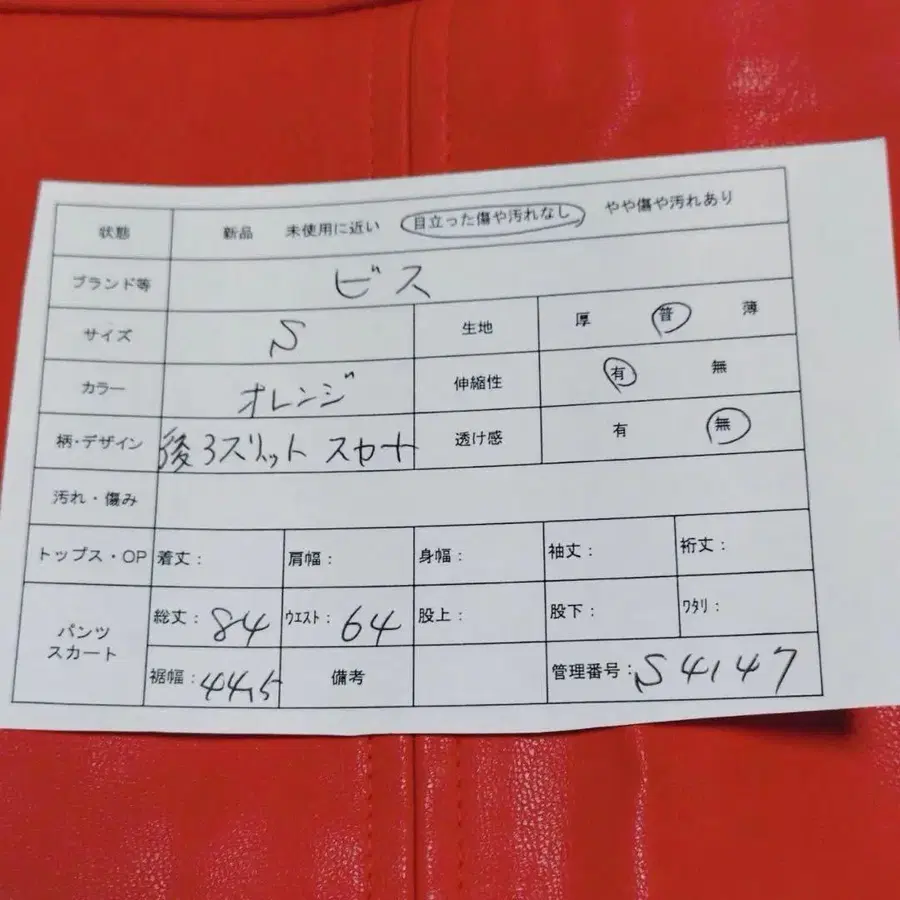 状態 新品 未使用に近い 目立った傷や汚れなし やや傷や汚れあり
ブランド等 ビス
サイズ S 生地 厚 普 薄
カラー オレンジ 伸縮性 有 無
柄・デザイン 後3スリット スカート 透け感 有 無
汚れ・傷み
トップス・OP 着丈: 肩幅: 身幅: 袖丈: 裄丈:
パンツ
スカート
総丈:84 ウエスト:64 股上: 股下: ワタリ:
裾幅:44,5 備考 管理番号:S4147